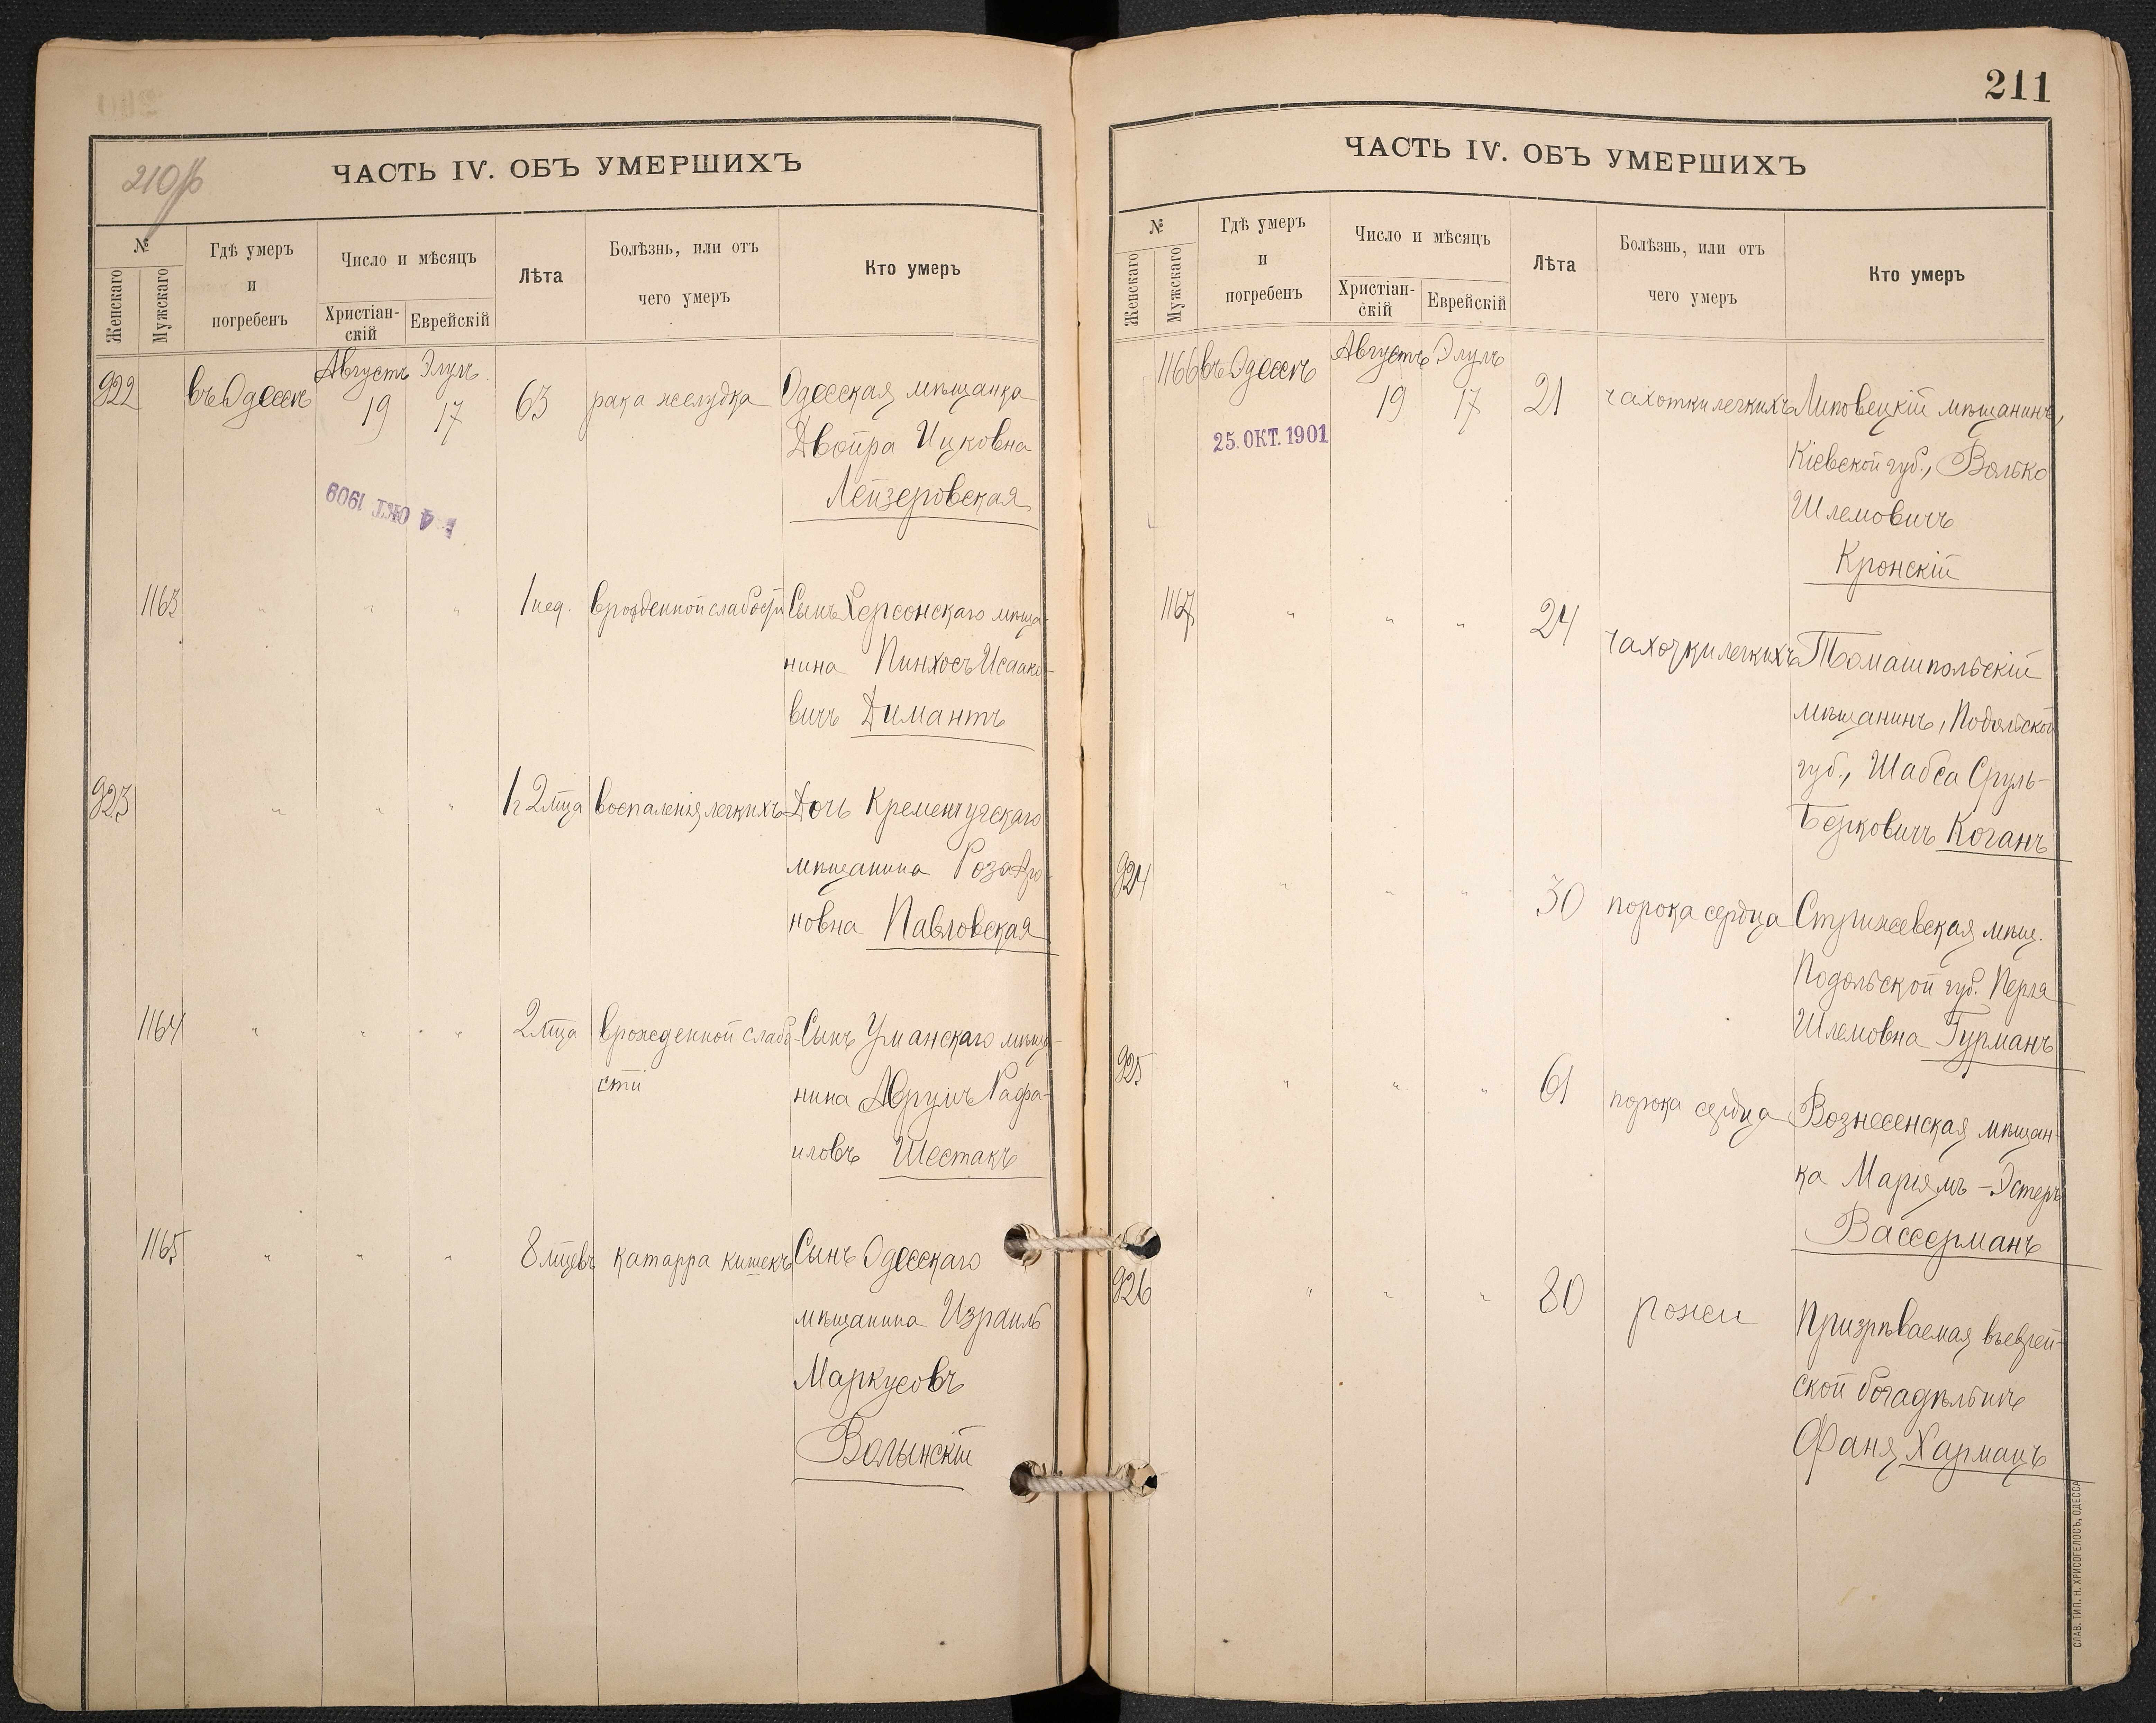 210об
ЧАСТЬ IV. ОБЪ УМЕРШИХЪ
№
Женскаго
Мужскаго
Гдѣ умеръ
и
погребенъ
Число и мѣсяцъ
Христіан-
скій
Еврейскій
Лѣта
Болѣзнь, или отъ
чего умеръ
Кто умеръ
Августъ Элулъ
922 въ Одессѣ 19 17 63 рака желудка Одесская мѣщанка
Двойра Ицковна
Лейзеровская
4 ОКТ 1909
1163 " " " 1 нед. врожденной слабости Сынъ Херсонскаго мѣща-
нина Пинхосъ Исаако-
вичъ Димантъ
923 " " " 1 г 2 мца воспаленія легкихъ Дочь Кременчугскаго
мѣщанина Роза Аро-
новна Павловская
1164 " " " 2 мца врожденной слабо- Сынъ Уманскаго мѣща-
сти
нина Абрумъ Рафа-
иловъ Шестакъ
1165 " " " 8 мцевъ катарра кишекъ Сынъ Одесскаго
мѣщанина Израиль
Маркусовъ
Волынскій
211
ЧАСТЬ IV. ОБЪ УМЕРШИХЪ
№
Женскаго
Мужскаго
Гдѣ умеръ
и
погребенъ
Число и мѣсяцъ
Христіан-
скій
Еврейскій
Лѣта
Болѣзнь, или отъ
чего умеръ
Кто умеръ
Августъ Элулъ
1166 въ Одессѣ 19 17 21 чахотки легкихъ Липовецкій мѣщанинъ,
25. ОКТ. 1901
Кіевской губ., Волько
Шлемовичъ
Кронскій
1167 " " " 24 чахотки легкихъ Томашпольскій
мѣщанинъ, Подольской
губ., Шабса Сруль-
Берковичъ Коганъ
924 " " " 30 порока сердца Стрижевская мѣщ.
Подольской губ. Перля
Шлемовна Гурманъ
925 " " " 61 порока сердца Вознесенская мѣщан-
ка Маріямъ-Эстеръ
Вассерманъ
926 " " " 80 рожи Призрѣваемая въ еврей-
ской богадѣльнѣ
Фаня Харманъ
СЛАВ. ТИП. Н. ХРИСОГЕЛОСЪ, ОДЕССА